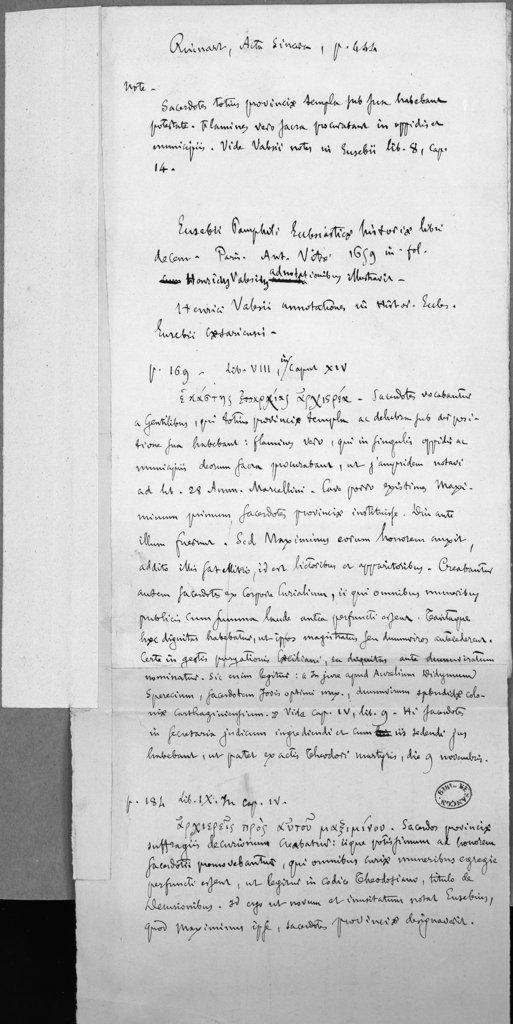 Ruinart, Acta Sincera, p. 444
Note -
Sacerdotes totius provinciæ templa sub sua habebant
potestate. Flamines vero sacra procurabant in oppidis et
municipiis. Vide Valesii notes in Eusebii lib. 8, cap.
14.
Eusebii Pamphili Ecclesiasticæ historiæ libri
decem - Paris. Ant. Vitré 1659 in fol.
Henricus Valesius adnotationibus illustravit -
Henrici Valesii annotationes in Histor. Eccles.
Eusebii Cæsariensis -
p. 169 - Lib. VIII, in Caput XIV
ἑκάστης ἐπαρχίας ἀρχιερέα - Sacerdotes vocabantur
a Gentilibus, qui totius provinciæ templa ac delubra sub dispositione
tione sua habebant : flamines vero, qui in singulis oppidis ac
municipiis deorum sacra procurabant, ut jampridem notavi
ad lib. 28 Amm. Marcellini. Cave porro existimes Maximinum
minum primum, sacerdotes provinciæ instituisse. Diu ante
illum fuerunt. Sed Maximinus eorum honorem auxit,
addito illis satellitio, id est lictoribus et apparitoribus. Creabantur
autem sacerdotes ex corpore Curialium, ii qui omnibus muneribus
publicis cum summa laude antea perfuncti essent. Tantaque
hæc dignitas habebatur, ut ipsos magistratus seu duumviros antecederent.
Certe in gestis purgationis Cæciliani, ea dignitas ante duumviratum
nominatur. Sic enim legitur : « In jure apud Aurelium Didymum
Sperecium, sacerdotem Jovis optimi max., duumvirum splendidæ coloniæ
niæ Carthaginiensium. » Vide cap. IV, lib. 9. Hi sacerdotes
in secretaria judicum ingrediendi et cum iis sedendi jus
habebant, ut patet ex actis Theodori martyris, die 9 novembris.
p. 184 Lib. IX. In Cap. IV.
ἀρχιερεῖς πρὸς αὐτοῦ μαξιμίνου. Sacerdos provinciæ
suffragiis decurionum creabatur : iique potissimum ad honorem
sacerdotii promovebantur, qui omnibus curiæ muneribus egregie
perfuncti essent, ut legitur in codice Theodosiano, titulo de
Decurionibus. Id ergo ut novum et inusitatum notat Eusebius,
quod Maximinus ipse, sacerdotes provinciæ designaverit.